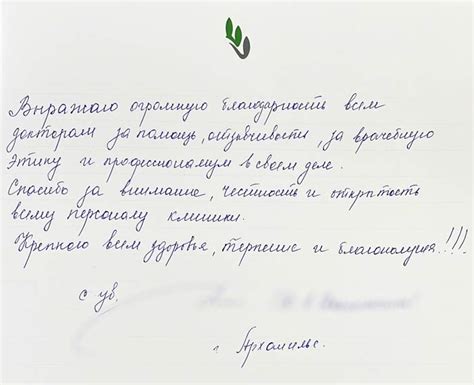 Выражаю огромную благодарность всем
докторам за помощь, отзывчивость, за врачебную
этику и профессионализм в своем деле.
Спасибо за внимание, честность и открытость
всему персоналу клиники.
Крепкого всем здоровья, терпения и благополучия!!!
с ув.
г.